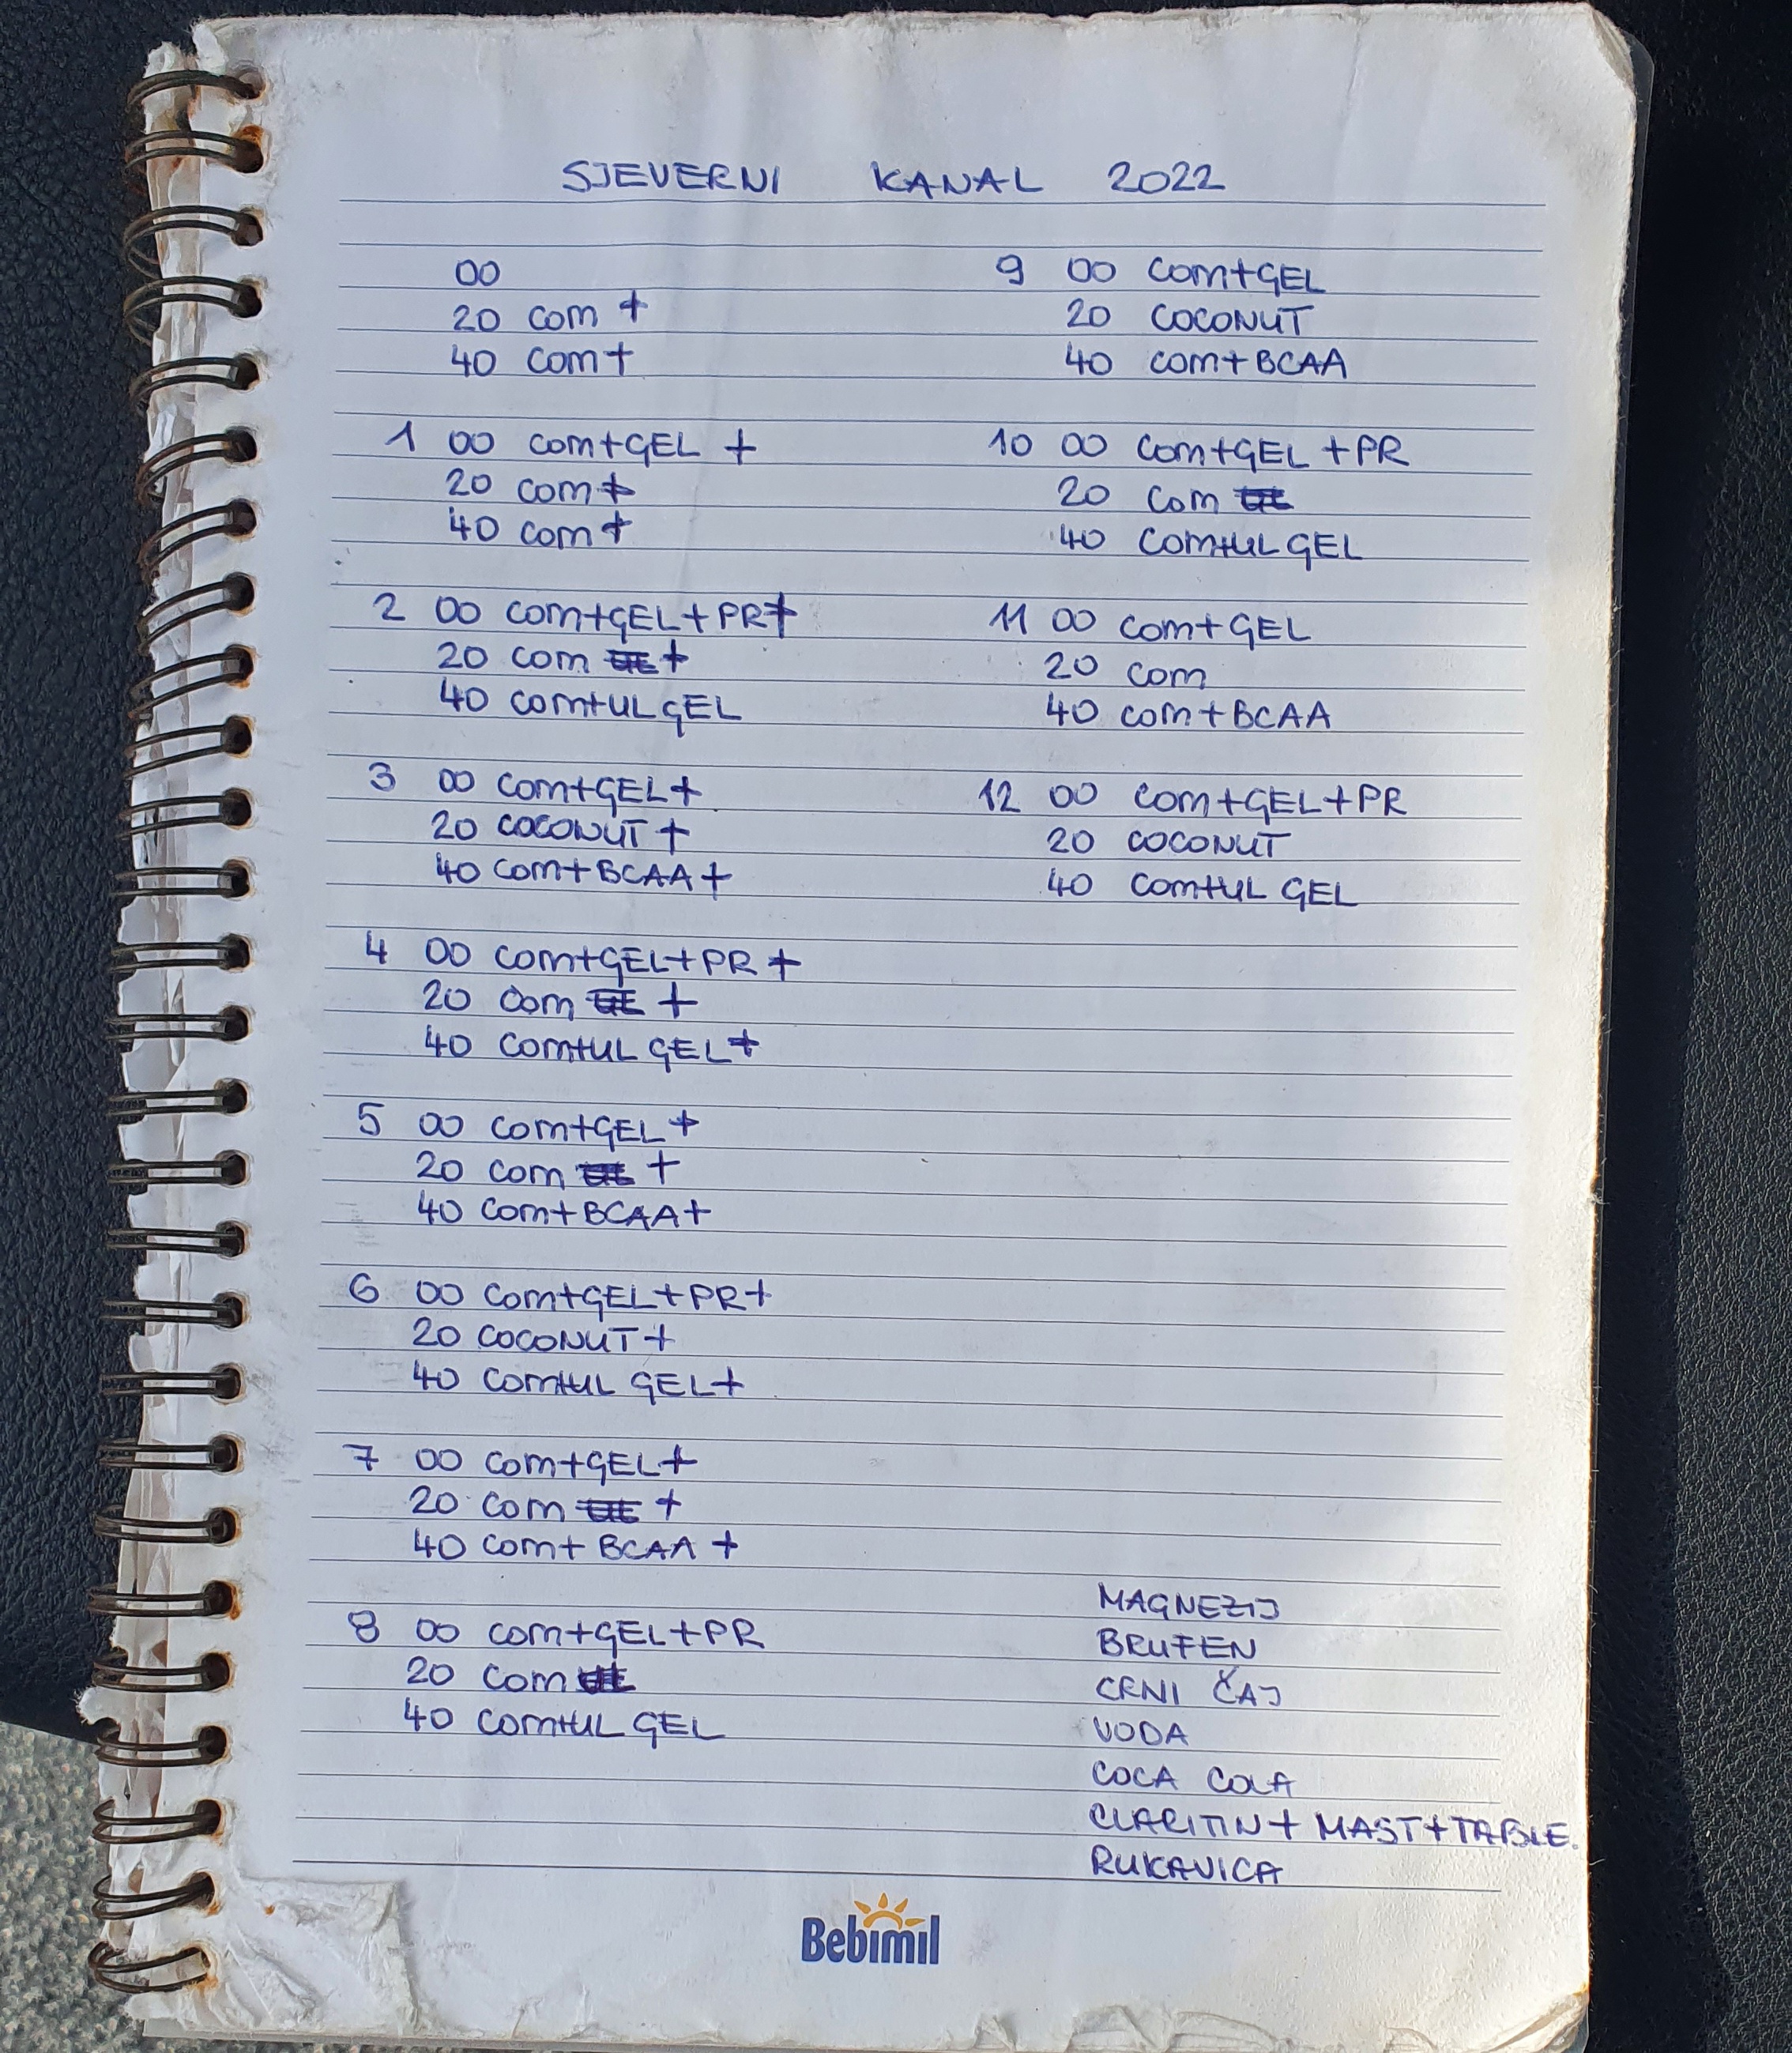 SJEVERNI KANAL 2022
00
20 com +
40 com +
1 00 com+GEL +
20 com +
40 com +
2 00 com+GEL+PR+
20 com +
40 com+UL GEL
3 00 com+GEL+
20 COCONUT +
40 com+BCAA+
4 00 com+GEL+PR +
20 com +
40 com+UL GEL+
5 00 com+GEL+
20 com +
40 com+BCAA+
6 00 com+GEL+PR+
20 COCONUT+
40 com+UL GEL+
7 00 com+GEL+
20 com +
40 com+ BCAA +
8 00 com+GEL+PR
20 com
40 com+UL GEL
9 00 com+GEL
20 COCONUT
40 com+BCAA
10 00 com+GEL +PR
20 com
40 com+UL GEL
11 00 com+GEL
20 com
40 com+BCAA
12 00 com+GEL+PR
20 COCONUT
40 com+UL GEL
MAGNEZIJ
BRUFEN
CRNI ČAJ
VODA
COCA COLA
CLARITIN+ MAST+TABLE.
RUKAVICA
Bebimil